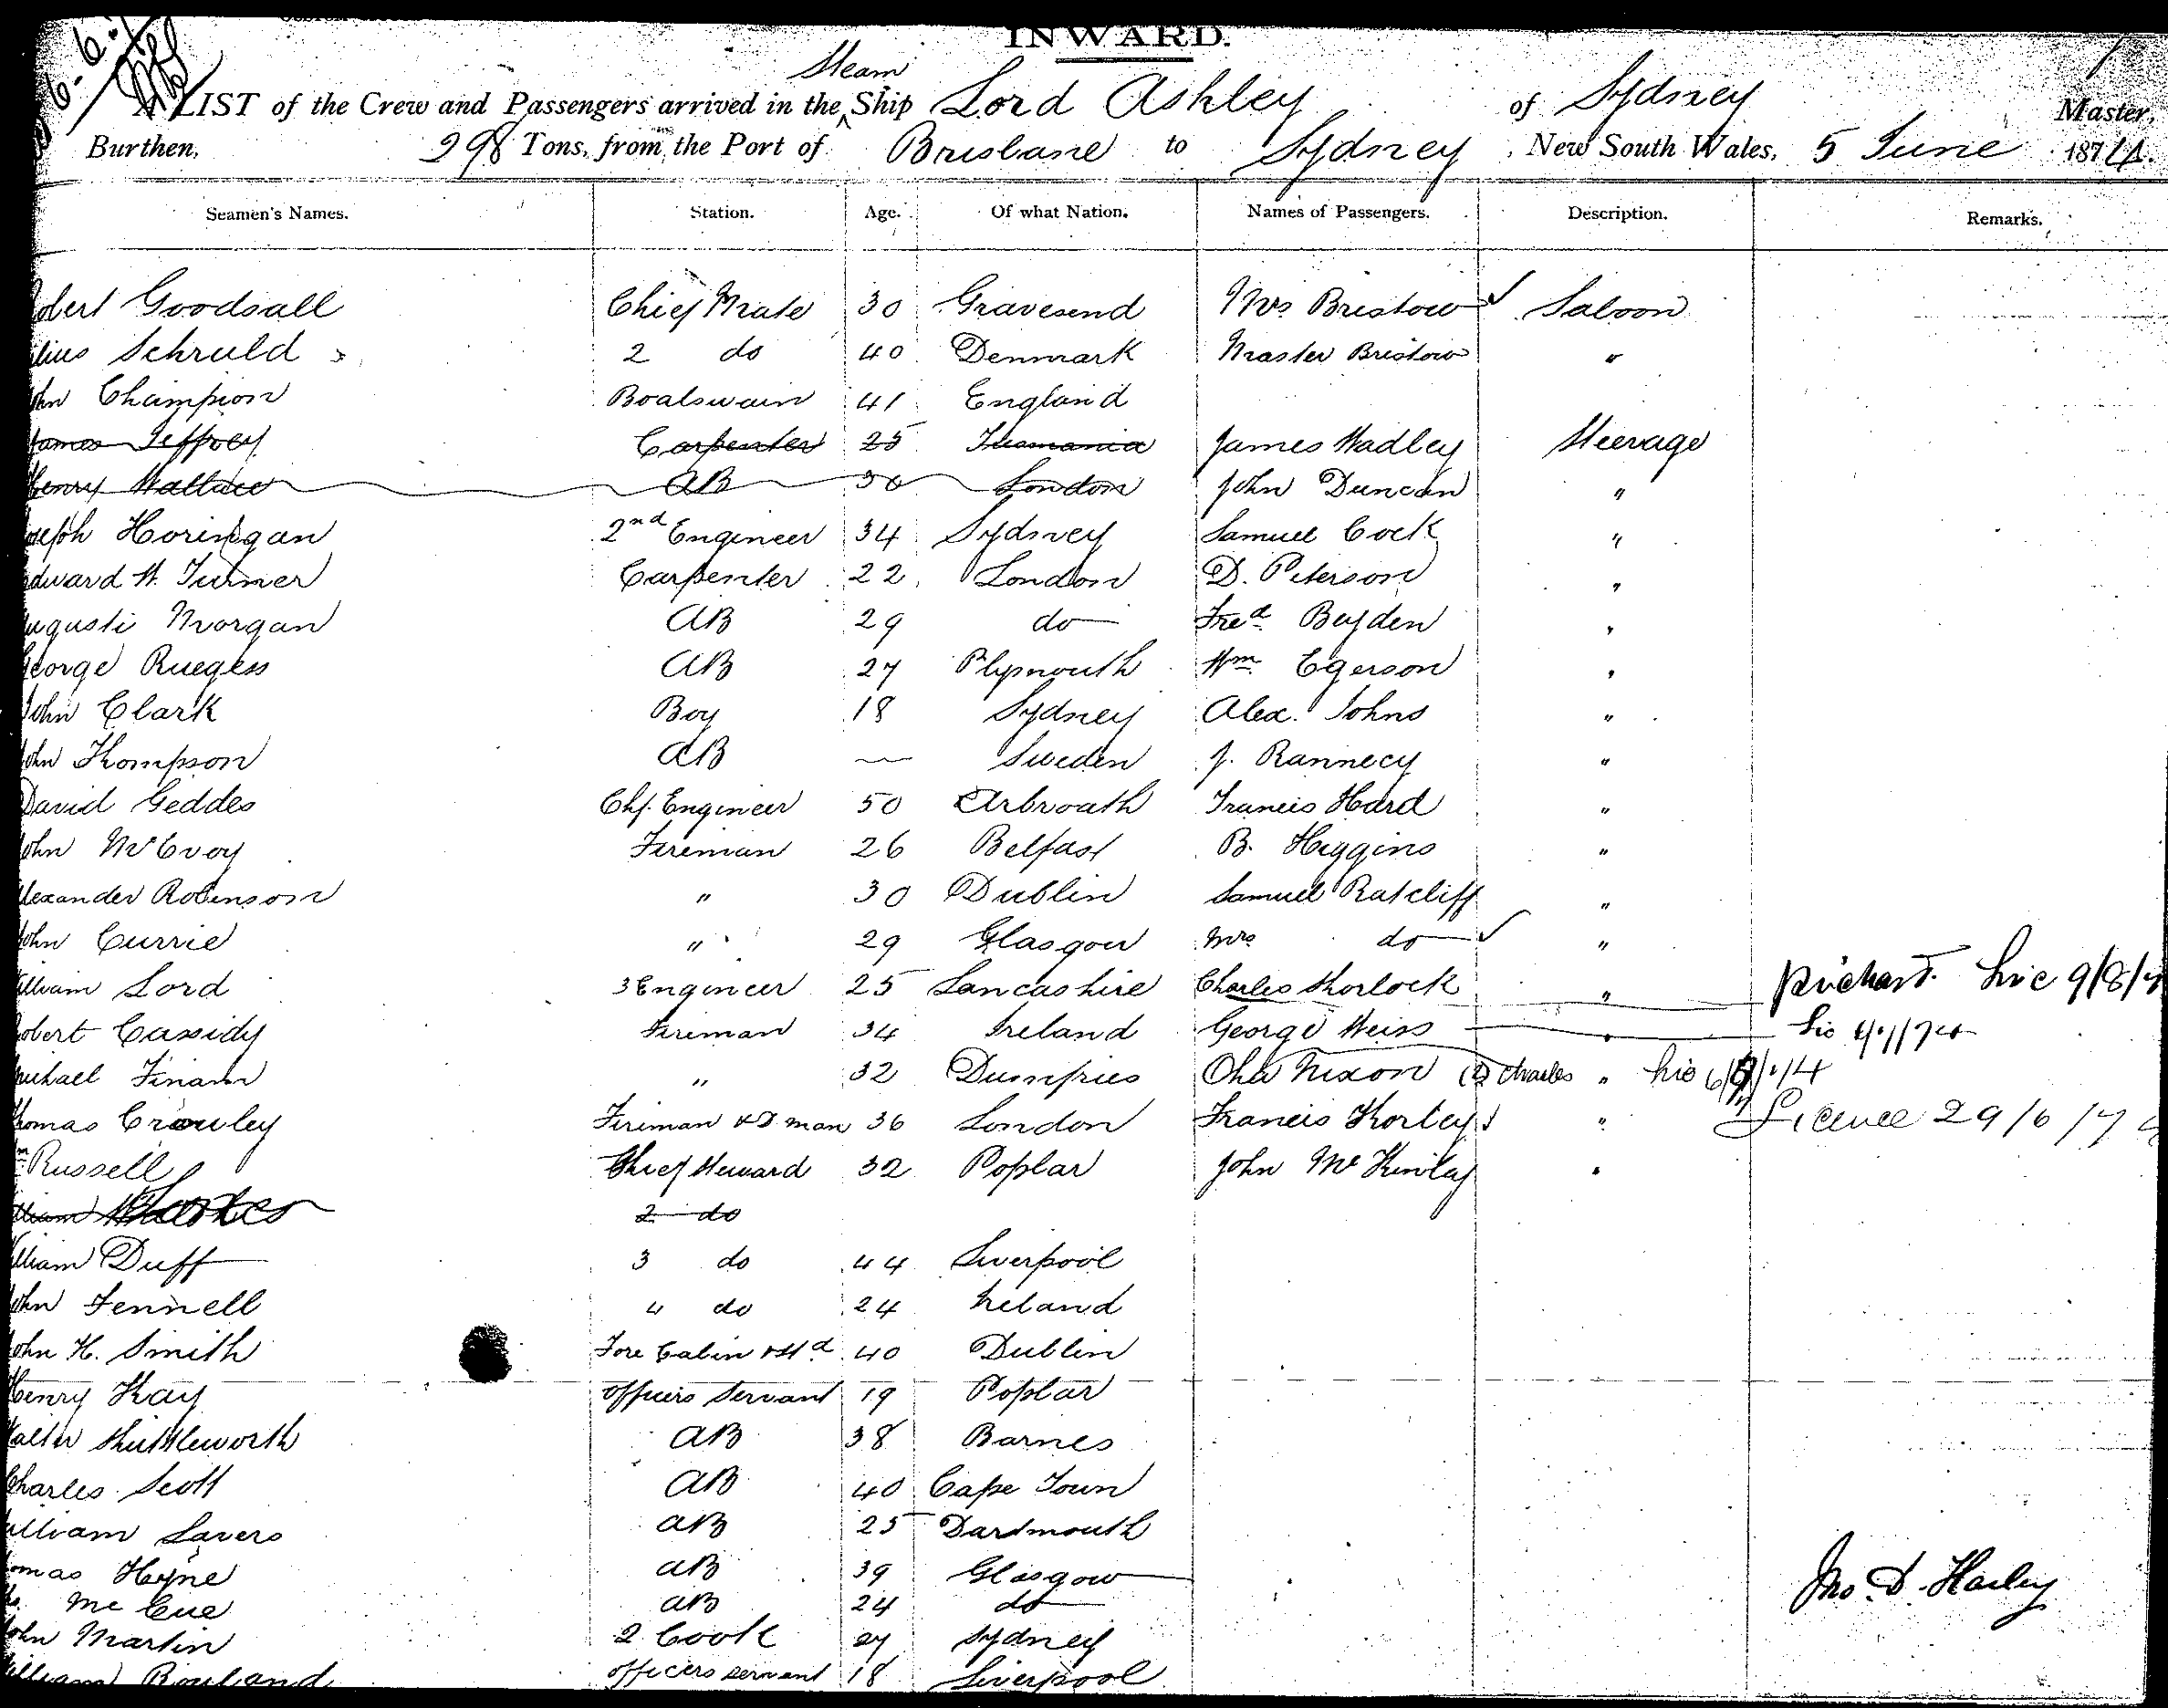 INWARD.
Steam
A LIST of the Crew and Passengers arrived in the Ship Lord Ashley of Sydney Master,
Burthen, 298 Tons, from the Port of Brisbane to Sydney, New South Wales, 5 June 1874.
Seamen's Names. Station. Age. Of what Nation. Names of Passengers. Description. Remarks.
obert Goodsall Chief Mate 30 Gravesend Mrs Bristow ✓ Saloon
lius Schruld 2 do 40 Denmark Master Bristow "
ohn Champion Boatswain 41 England
James Jeffrey Carpenter 25 Tasmania James Wadley Steerage
Henry Wallace AB 30 London John Duncan "
oseph Horingan 2nd Engineer 34 Sydney Samuel Cock "
dward W. Turner Carpenter 22 London D. Peterson "
ugusti Morgan AB 29 do Fred Boyden "
George Ruegless AB 27 Plymouth Wm Egerson "
John Clark Boy 18 Sydney Alex. Johns "
John Thompson AB — Sweden J. Rannecy "
David Geddes Chf. Engineer 50 Arbroath Francis Hard "
John McEvoy Fireman 26 Belfast B. Higgins "
lexander Robinson " 30 Dublin Samuel Ratcliff "
John Currie " 29 Glasgow Mrs do ✓ "
illiam Lord 3 Engineer 25 Lancashire Charles Horlock " Lic 9/8/
obert Cassidy Fireman 34 Ireland George Weiss " Lic
ichael Finann " 32 Dumfries Cha Nixon Charles " Lic
homas Crowley Fireman & T man 36 London Francis Horley " Licence 29/6/7
m Russell Chief Steward 32 Poplar John McKinlay "
lliam 2 do
illiam Duff 3 do 44 Liverpool
ohn Fennell 4 do 24 Ireland
John H. Smith Fore Cabin Std 40 Dublin
Henry Kay Officers Servant 19 Poplar
alter Shuttleworth AB 38 Barnes
Charles Scott AB 40 Cape Town
illiam Savers AB 25 Dartmouth
omas Hyne AB 39 Glasgow
Mc Cue AB 24 do
ohn Martin 2 Cook 27 Sydney
illiam Rowland officers servant 18 Liverpool
Jno. D. Harley